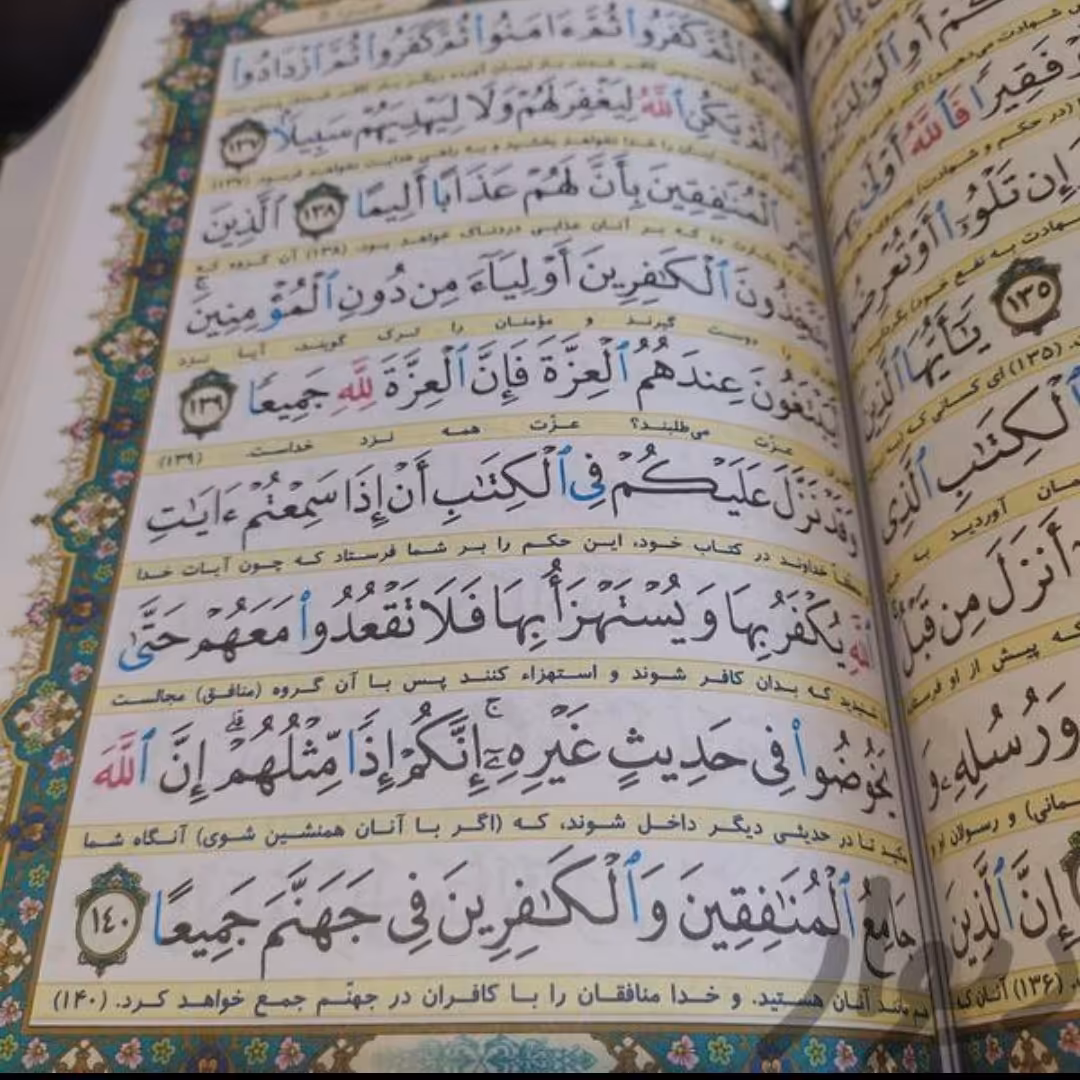 أَوِ ٱلْوَٰلِدَيْنِ
فَقِيرًا فَٱللَّهُ أَوْلَىٰ
(در حکم و شهادت)
إِن تَلْوُۥٓا۟ أَوْ تُعْرِضُوا۟
به نفع خود)
١٣٥ يَـٰٓأَيُّهَا ٱلَّذِينَ
(۱۳۵) ای کسانی که
ٱلْكِتَـٰبِ ٱلَّذِى
آوردید به
أَنزَلَ مِن قَبْلُ
که پیش از او
وَرُسُلِهِۦ وَ
و رسولان او و
إِنَّ ٱلَّذِينَ
(۱۳۶) آنان که
ثُمَّ كَفَرُوا۟ ثُمَّ ءَامَنُوا۟ ثُمَّ كَفَرُوا۟ ثُمَّ ٱزْدَادُوا۟
لَّمْ يَكُنِ ٱللَّهُ لِيَغْفِرَ لَهُمْ وَلَا لِيَهْدِيَهُمْ سَبِيلًۢا ١٣٧
را خدا نخواهد بخشید و به راهی هدایت نخواهد فرمود. (۱۳۷)
ٱلْمُنَـٰفِقِينَ بِأَنَّ لَهُمْ عَذَابًا أَلِيمًا ١٣٨ ٱلَّذِينَ
ده که بر آنان عذابی دردناک خواهد بود. (۱۳۸) آن گروه که
يَتَّخِذُونَ ٱلْكَـٰفِرِينَ أَوْلِيَآءَ مِن دُونِ ٱلْمُؤْمِنِينَ ۚ
را دوست گیرند و مؤمنان را ترک گویند، آیا نزد
أَيَبْتَغُونَ عِندَهُمُ ٱلْعِزَّةَ فَإِنَّ ٱلْعِزَّةَ لِلَّهِ جَمِيعًا ١٣٩
عزت می‌طلبند؟ عزّت همه نزد خداست. (۱۳۹)
وَقَدْ نَزَّلَ عَلَيْكُمْ فِى ٱلْكِتَـٰبِ أَنْ إِذَا سَمِعْتُمْ ءَايَـٰتِ
خداوند در کتاب خود، این حکم را بر شما فرستاد که چون آیات خدا
ٱللَّهِ يُكْفَرُ بِهَا وَيُسْتَهْزَأُ بِهَا فَلَا تَقْعُدُوا۟ مَعَهُمْ حَتَّىٰ
شنیدید که بدان کافر شوند و استهزاء کنند پس با آن گروه (منافق) مجالست
يَخُوضُوا۟ فِى حَدِيثٍ غَيْرِهِۦٓ ۚ إِنَّكُمْ إِذًا مِّثْلُهُمْ ۗ إِنَّ ٱللَّهَ
مکنید تا در حدیثی دیگر داخل شوند، که (اگر با آنان همنشین شوی) آنگاه شما
جَامِعُ ٱلْمُنَـٰفِقِينَ وَٱلْكَـٰفِرِينَ فِى جَهَنَّمَ جَمِيعًا ١٤٠
هم مانند آنان هستید. و خدا منافقان را با کافران در جهنّم جمع خواهد کرد. (۱۴۰)
دیوار